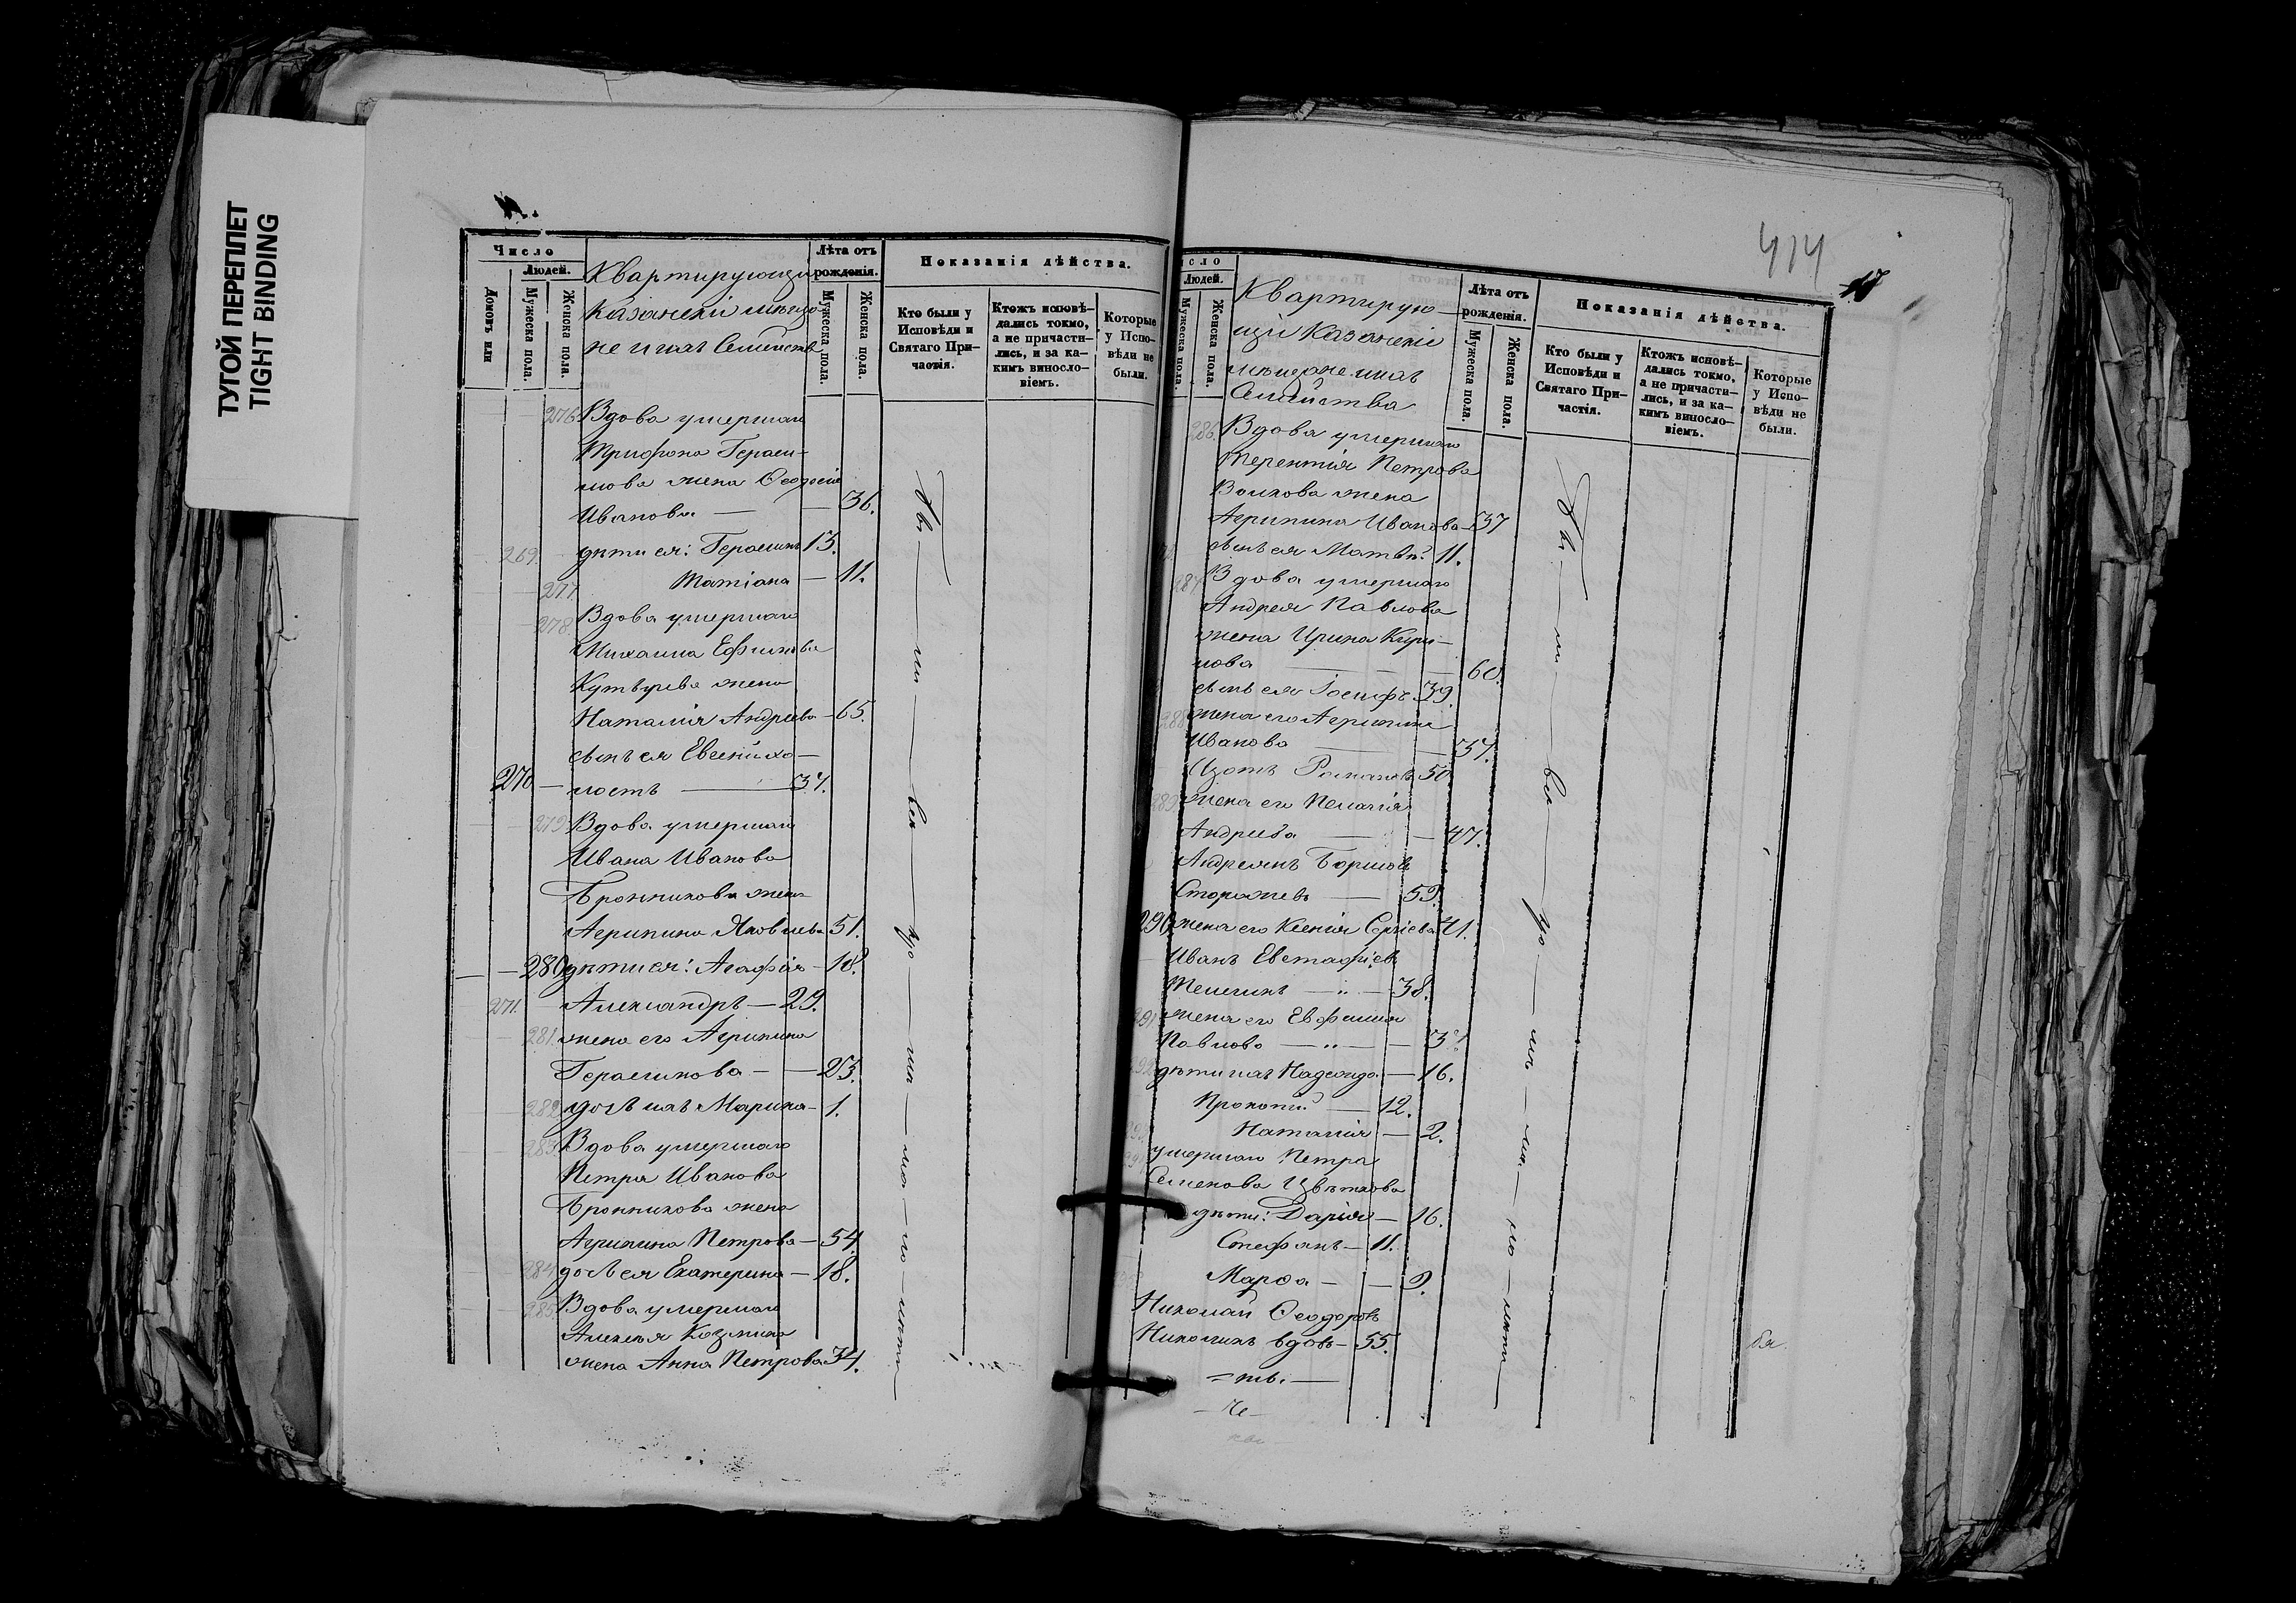 ТУГОЙ ПЕРЕПЛЕТ
TIGHT BINDING
Число
Людей.
Домовъ или
Мужеска пола.
Женска пола.
Квартирующіи
Казанскіи мѣща-
не и ихъ Семейства
Лѣта отъ
рожденія.
Мужеска пола.
Женска пола.
Показанія дѣйства.
Кто были у
Исповѣди и
Святаго При-
частія.
Ктожъ исповѣ-
дались токмо,
а не причасти-
лись, и за ка-
кимъ винosло-
віемъ.
Которые
у Испо-
вѣди не
были.
276. Вдова умершаго
Трифона Гераси-
мова жена Ѳеодосія
Иванова — — 36.
269. дѣти ея: Герасимъ 13.
277. Татіана — 11.
278. Вдова умершаго
Михаила Ефимова
жена
Наталія Андреева — 65.
сынъ ея Евсевій хо-
270 — лостъ — 37.
279. Вдова умершаго
Ивана Иванова
Бронникова жена
Агрипина Яковлева 51.
280 дѣти ея: Агафія — 18.
271. Александръ — 29.
281. жена его Агрипина
Герасимова — — 23.
282. дочь ихъ Марина — 1.
283. Вдова умершаго
Петра Иванова
Бронникова жена
Агрипина Петрова — 54.
284. дочь ея Екатерина — 18.
285. Вдова умершаго
Алексѣя Козмина
жена Анна Петрова 34.
414
сло
Людей.
Мужеска пола.
Женска пола.
Квартирую-
щіи Казанскіе
мѣщане и ихъ
Семейства
Лѣта отъ
рожденія.
Мужеска пола.
Женска пола.
Показанія дѣйства.
Кто были у
Исповѣди и
Святаго При-
частія.
Ктожъ исповѣ-
дались токмо,
а не причасти-
лись, и за ка-
кимъ винosло-
віемъ.
Которые
у Испо-
вѣди не
были.
286. Вдова умершаго
Терентія Петрова
Волкова жена
Агрипина Иванова — 37
сынъ ея Матвѣй 11.
287. Вдова умершаго
Андрея Павлова
жена Ирина Кири-
лова — — 60.
сынъ ея Іосифъ 39.
288. жена его Агрипина
Иванова — — 37.
Изотъ Романовъ 50
289. жена его Пелагія
Андреева — — 47.
Андреянъ Борисовъ
Сторожевъ — 53.
290. жена его Ксенія Сергіева 41.
Иванъ Евстафіевъ
Телегинъ — 38.
291. жена его Евфимія
Павлова — —
дѣти ихъ Надежда — 16.
Прокопій — 12.
Наталія — 2.
умершаго Петра
Семенова Цвѣткова
дѣти: Дарія — 16.
Стефанъ — 11.
Марѳа — — 9.
Николай Ѳеодоровъ
Никитинъ вдовъ — 55.